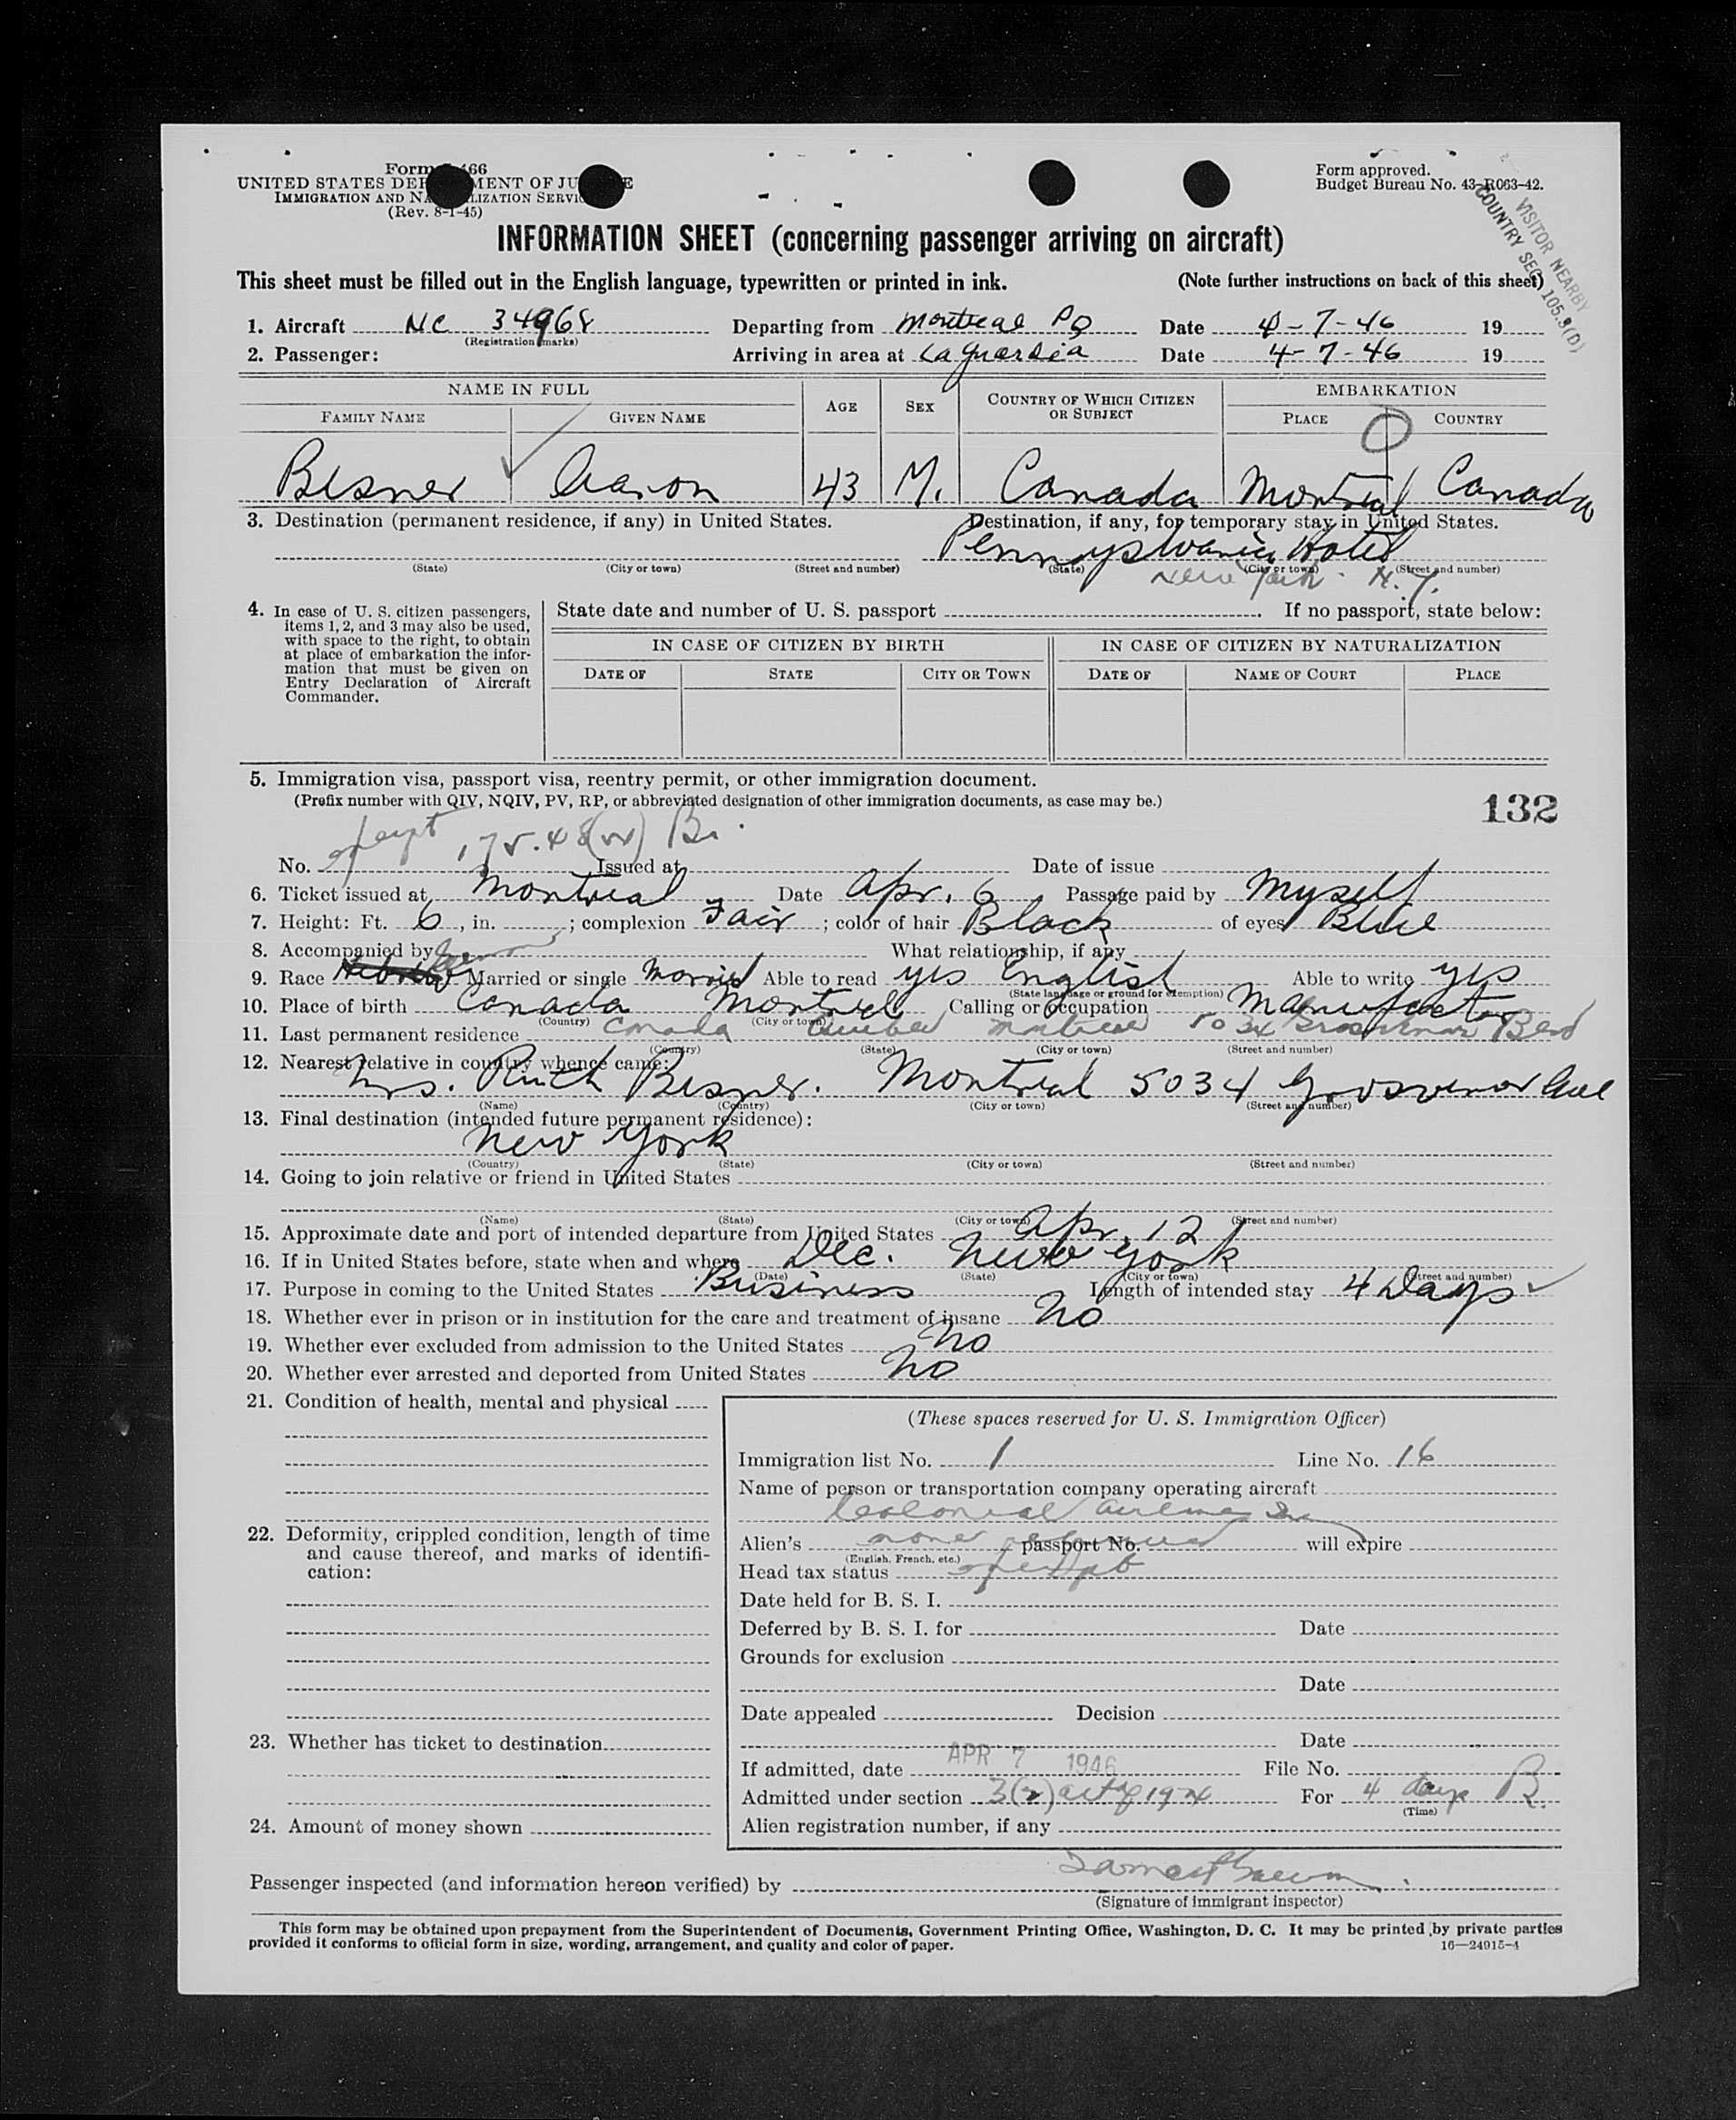 Form 466
UNITED STATES DEPARTMENT OF JUSTICE
IMMIGRATION AND NATURALIZATION SERVICE
(Rev. 8-1-45)
Form approved.
Budget Bureau No. 43-R063-42.
VISITOR NEARBY
COUNTRY SEC. 105.3(D)
INFORMATION SHEET (concerning passenger arriving on aircraft)
This sheet must be filled out in the English language, typewritten or printed in ink. (Note further instructions on back of this sheet)
1. Aircraft NC 34968 Departing from Montreal PQ Date 4-7-46 19
(Registration marks)
2. Passenger: Arriving in area at LaGuardia Date 4-7-46 19
NAME IN FULL AGE SEX COUNTRY OF WHICH CITIZEN OR SUBJECT EMBARKATION
FAMILY NAME GIVEN NAME PLACE COUNTRY
Besner Aaron 43 M. Canada Montreal Canada
3. Destination (permanent residence, if any) in United States. Destination, if any, for temporary stay in United States.
Pennyslvania Hotel
(State) (City or town) (Street and number) (State) (City or town) (Street and number)
New York N.Y.
4. In case of U. S. citizen passengers, items 1, 2, and 3 may also be used, with space to the right, to obtain at place of embarkation the information that must be given on Entry Declaration of Aircraft Commander.
State date and number of U. S. passport . If no passport, state below:
IN CASE OF CITIZEN BY BIRTH IN CASE OF CITIZEN BY NATURALIZATION
DATE OF STATE CITY OR TOWN DATE OF NAME OF COURT PLACE
5. Immigration visa, passport visa, reentry permit, or other immigration document.
(Prefix number with QIV, NQIV, PV, RP, or abbreviated designation of other immigration documents, as case may be.)
132
No. 175.48 Issued at Date of issue
6. Ticket issued at Montreal Date Apr. 6 Passage paid by Myself
7. Height: Ft. 6, in. ; complexion Fair ; color of hair Black of eyes Blue
8. Accompanied by What relationship, if any
9. Race Hebrew Married or single Married Able to read yes English Able to write yes
(State language or ground for exemption)
10. Place of birth Canada Montreal Calling or occupation Manufacturer
(Country) (City or town)
11. Last permanent residence Canada Quebec Montreal 5034 Grosvenor Blvd
(Country) (State) (City or town) (Street and number)
12. Nearest relative in country whence came:
Mrs. Ruth Besner. Montreal 5034 Grosvenor Ave
(Name) (Country) (City or town) (Street and number)
13. Final destination (intended future permanent residence):
New York
(Country) (State) (City or town) (Street and number)
14. Going to join relative or friend in United States
(Name) (State) (City or town) (Street and number)
15. Approximate date and port of intended departure from United States Apr. 12
16. If in United States before, state when and where Dec. New York
(Date) (State) (City or town) (Street and number)
17. Purpose in coming to the United States Business Length of intended stay 4 Days
18. Whether ever in prison or in institution for the care and treatment of insane No
19. Whether ever excluded from admission to the United States No
20. Whether ever arrested and deported from United States No
21. Condition of health, mental and physical
22. Deformity, crippled condition, length of time and cause thereof, and marks of identification:
23. Whether has ticket to destination
24. Amount of money shown
(These spaces reserved for U. S. Immigration Officer)
Immigration list No. 1 Line No. 16
Name of person or transportation company operating aircraft
Colonial Airlines Inc
Alien's none passport No. will expire
(English, French, etc.)
Head tax status
Date held for B. S. I.
Deferred by B. S. I. for Date
Grounds for exclusion
Date
Date appealed Decision
Date
If admitted, date APR 7 1946 File No.
Admitted under section 3(2) act of 1924 For 4 days
(Time)
Alien registration number, if any
Passenger inspected (and information hereon verified) by
(Signature of immigrant inspector)
This form may be obtained upon prepayment from the Superintendent of Documents, Government Printing Office, Washington, D. C. It may be printed by private parties
provided it conforms to official form in size, wording, arrangement, and quality and color of paper. 16—24915-4